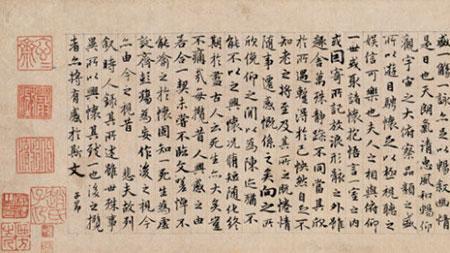 盛一觴一詠亦足以暢敘幽情
是日也天朗氣清惠風和暢仰
觀宇宙之大俯察品類之盛
所以遊目騁懷足以極視聽之
娛信可樂也夫人之相與俯仰
一世或取諸懷抱悟言一室之內
或因寄所託放浪形骸之外雖
趣舍萬殊靜躁不同當其欣
於所遇暫得於己快然自足不
知老之將至及其所之既惓情
隨事遷感慨係之矣向之所
欣俛仰之間以為陳迹猶不
能不以之興懷況脩短隨化終
期於盡古人云死生亦大矣豈
不痛哉每攬昔人興感之由
若合一契未嘗不臨文嗟悼不
能喻之於懷固知一死生為虛
誕齊彭殤為妄作後之視今
亦由今之視昔 悲夫故列
敘時人錄其所述雖世殊事
異所以興懷其致一也後之攬
者亦將有感於斯文
子昂
趙氏子昂